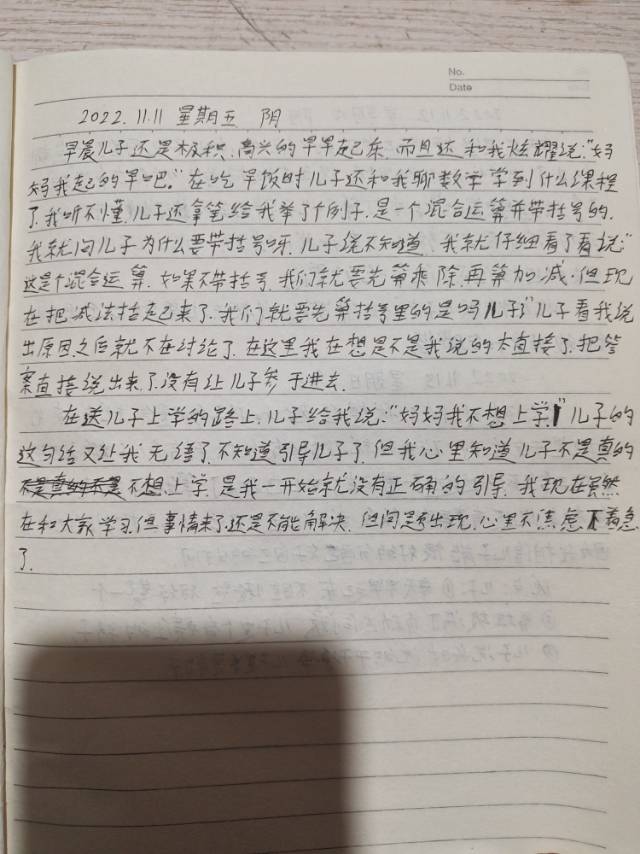 No.
Date
2022.11.11 星期五 阴
早晨儿子还是积极、高兴的早早起床,而且还和我炫耀说:“妈
妈我起的早吧。”在吃早饭时儿子还和我聊数学学到什么课程
了,我听不懂,儿子还拿笔给我举了个例子,是一个混合运算并带括号的,
我就问儿子为什么要带括号呀,儿子说不知道,我就仔细看了看说:“
这是个混合运算,如果不带括号,我们就要先算乘除,再算加减.但现
在把减法括起来了,我们就要先算括号里的是吗儿子”儿子看我说
出原因之后就不在讨论了,在这里我在想是不是我说的太直接了,把答
案直接说出来了,没有让儿子参于进去.
在送儿子上学的路上,儿子给我说:“妈妈我不想上学!”儿子的
这句话又让我无语了,不知道引导儿子了,但我心里知道儿子不是真的
不想上学,是我一开始就没有正确的引导,我现在虽然
在和大家学习,但事情来了还是不能解决,但问题出现,心里不焦急不着急
了.